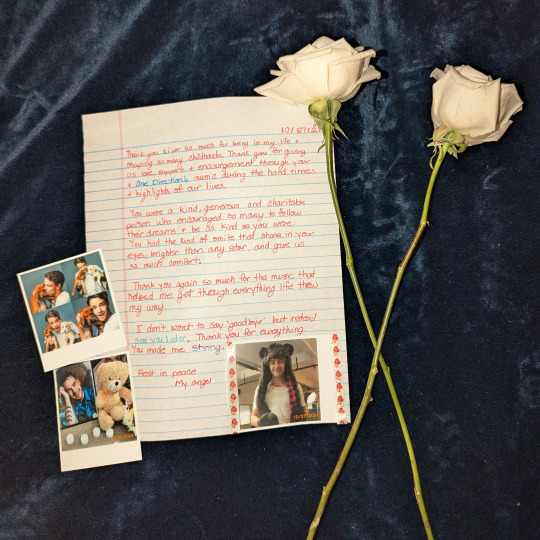 10/27/
Thank you Liam so much for being in my life +
shaping so many childhoods. Thank you for giving
us love, support + encouragement through your
+ One Direction's music during the hard times
+ highlights of our lives.
You were a kind, generous and charitable
person who encouraged so many to follow
their dreams + be as kind as you were.
You had the kind of smile that shone in your
eyes, brighter than any star, and gave us
so much comfort.
Thank you again so much for the music that
helped me get through everything life threw
my way.
I don't want to say "goodbye" but instead
see you later. Thank you for everything.
You made me strong.
Rest in peace
My angel
10/27/2024